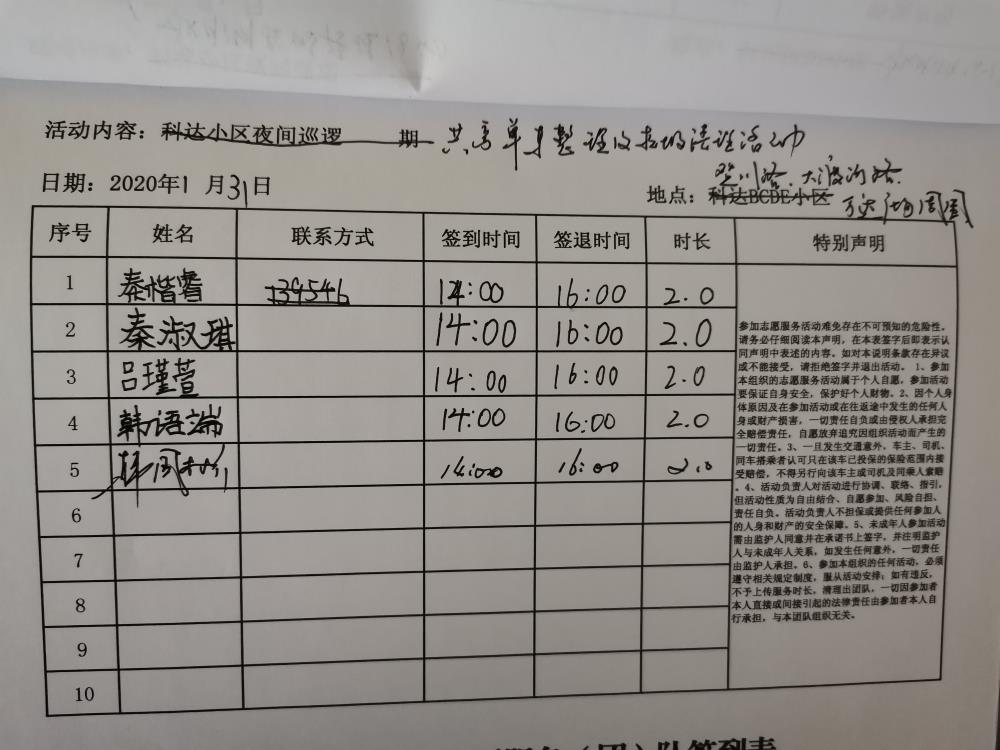 活动内容：科达小区夜间巡逻 期 共享单车整理及垃圾清理活动
登川路、大渡河路
日期：2020年1月31日 地点：科达BCDE小区 万达广场周围
序号 姓名 联系方式 签到时间 签退时间 时长 特别声明
1 秦楷睿 139546 14:00 16:00 2.0
2 秦淑琪 14:00 16:00 2.0
3 吕瑾萱 14:00 16:00 2.0
4 韩语端 14:00 16:00 2.0
5 14:00 16:00 2.0
6
7
8
9
10
参加志愿服务活动难免存在不可预知的危险性。
请务必仔细阅读本声明，在本表签字后即表示认
同声明中表述的内容。如对本说明条款存在异议
或不能接受，请拒绝签字并退出活动。 1、参加
本组织的志愿服务活动属于个人自愿，参加活动
要保证自身安全，保护好个人财物。2、因个人身
体原因及在参加活动或在往返途中发生的任何人
身或财产损害，一切责任自负或由侵权人承担完
全赔偿责任，自愿放弃追究因组织活动而产生的
一切责任。3、一旦发生交通意外，车主、司机、
同车搭乘者认可只在该车已投保的保险范围内接
受赔偿，不得另行向该车主或司机及同乘人索赔
。4、活动负责人对活动进行协调、联络、指引，
但活动性质为自由结合、自愿参加、风险自担、
责任自负。活动负责人不担保或提供任何参加人
的人身和财产的安全保障。5、未成年人参加活动
需由监护人同意并在承诺书上签字，并注明监护
人与未成年人关系，如发生任何意外，一切责任
由监护人承担。6、参加本组织的任何活动，必须
遵守相关规定制度，服从活动安排；如有违反，
不予上传服务时长，清理出团队，一切因参加者
本人直接或间接引起的法律责任由参加者本人自
行承担，与本团队组织无关。
（团）队签到表